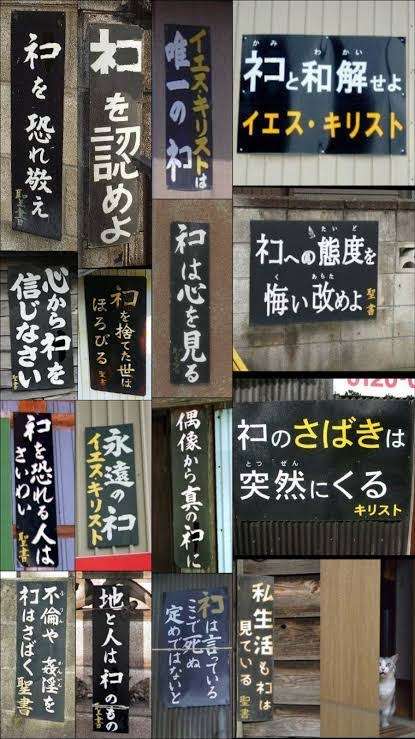 ネコを恐れ敬え
聖書
ネコを認めよ
イエス・キリストは
唯一のネコ
かみ わかい
ネコと和解せよ
イエス・キリスト
心からネコを
信じなさい
聖書
ネコを捨てた世は
ほろびる 聖書
ネコは心を見る
聖書
たいど
ネコへの態度を
く あらた
悔い改めよ 聖書
ネコを恐れる人は
さいわい 聖書
永遠のネコ
イエスキリスト
偶像から真のネコに
0120-0
ネコのさばきは
とつ ぜん
突然にくる
キリスト
不倫や姦淫を
ネコはさばく 聖書
地と人はネコのもの
聖書
ネコは言っている
ここで死ぬ
定めではないと
私生活もネコは
見ている 聖書